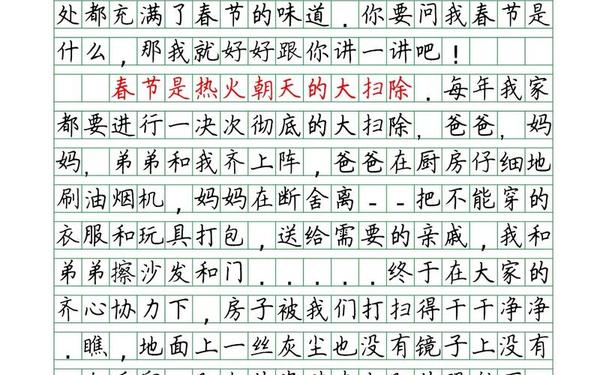 处都充满了春节的味道．你要问我春节是
什么，那我就好好跟你讲一讲吧！
春节是热火朝天的大扫除．每年我家
都要进行一决次彻底的大扫除，爸爸，妈
妈，弟弟和我齐上阵，爸爸在厨房仔细地
刷油烟机，妈妈在断舍离--把不能穿的
衣服和玩具打包，送给需要的亲戚，我和
弟弟擦沙发和门．．．．．终于在大家的
齐心协力下，房子被我们打扫得干干净净
．瞧，地面上一丝灰尘也没有镜子上没有